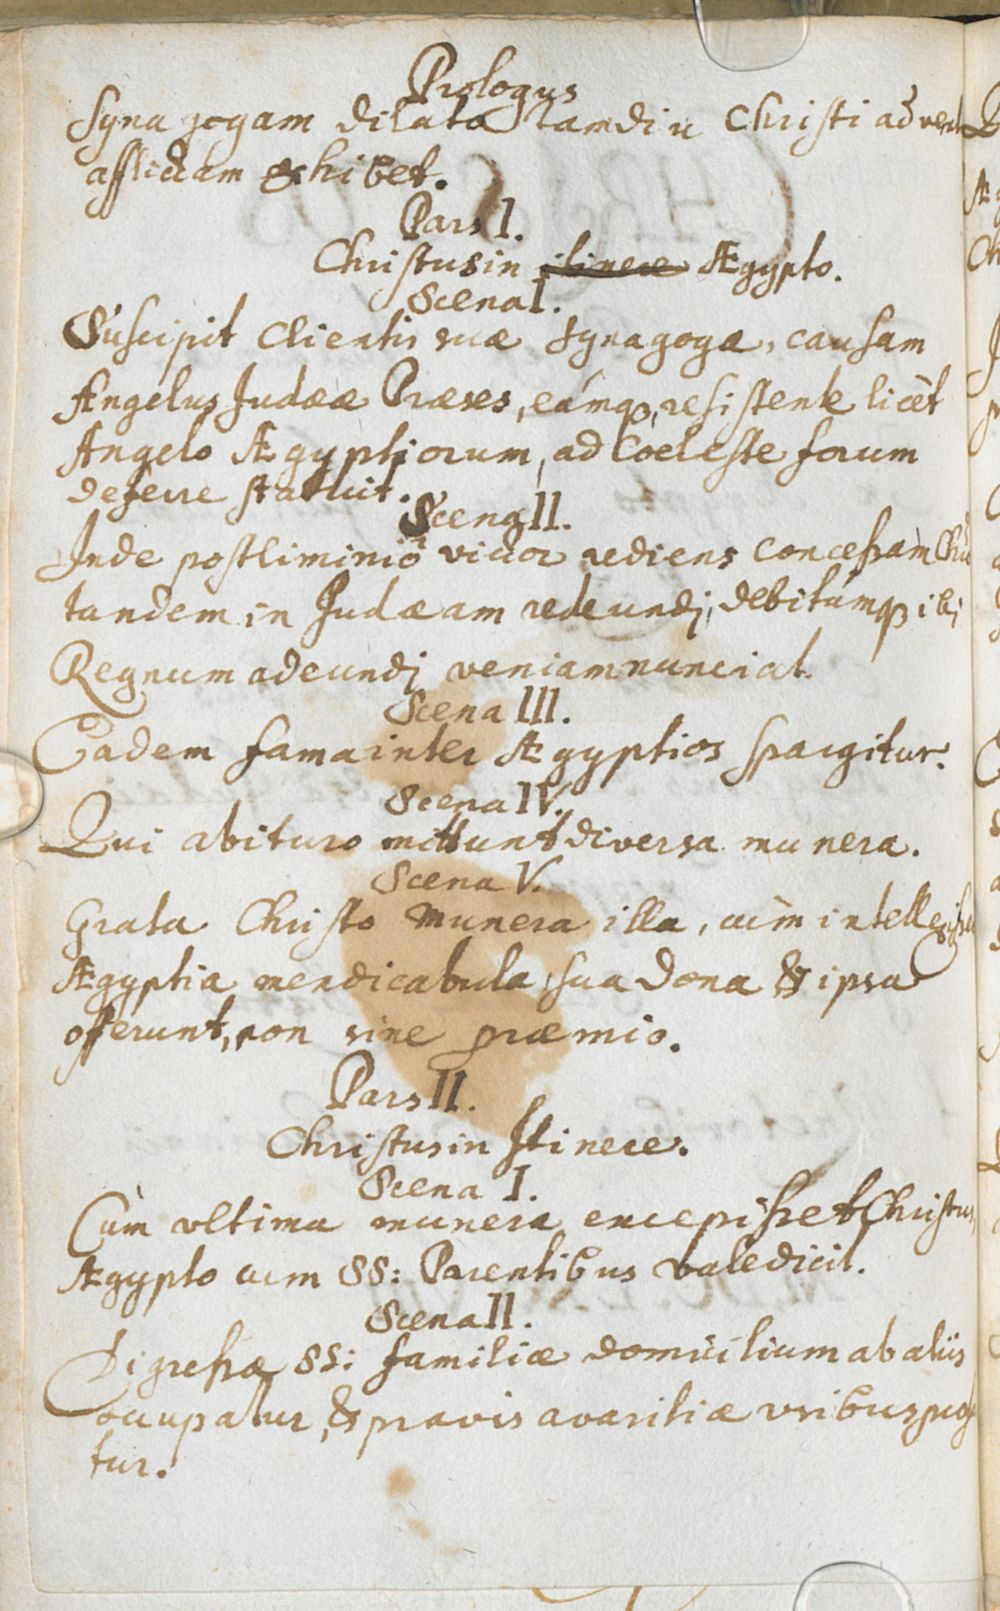 Prologus
Synagogam dilato tamdiu Christi advent
afflictam exhibet.
Pars I.
Christus in itinere Ægypto.
Scena I.
Suscipit Clientis suæ Synagogæ, causam
Angelus Judææ Præses, eámq;, resistente licèt
Angelo Ægyptiorum, ad Coeleste forum
deferre statuit.
Scena II.
Inde postliminiô victor rediens concessam
tandem in Judæam redeundj, debitúmq; ibj
Regnum adeundj veniam nunciat.
Scena III.
Eadem fama inter Ægyptios spargitur.
Scena IV.
Qui abituro mittunt diversa munera.
Scena V.
Grata Christo munera illa, cùm
Ægyptia mendicabula, sua dona & ipsa
offerunt, non sine præmio.
Pars II.
Christus in Itinere.
Scena I.
Cùm ultima munera excepisset Christus,
Ægypto cum SS: Parentibus valedicit.
Scena II.
Digressæ SS: familiæ domicilium ab aliis
occupatur, & pravis avaritiæ usibus
tur.